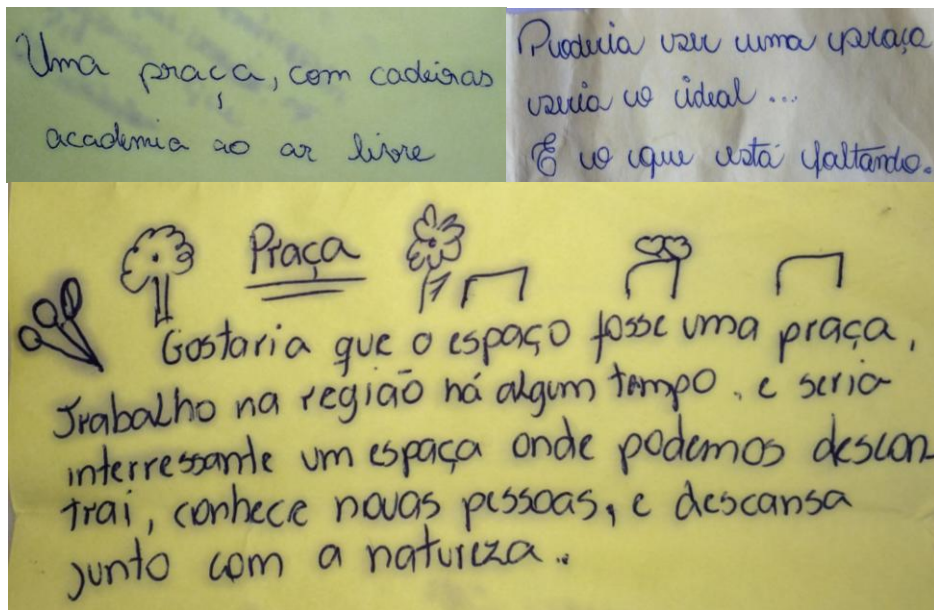 Uma praça, com cadeiras
academia ao ar livre
Poderia ser uma praça
seria o ideal...
É o que está faltando.
Praça
Gostaria que o espaço fosse uma praça,
Trabalho na região há algum tempo, e seria
interressante um espaça onde podemos descon
trai, conhece novas pessoas, e descansa
junto com a natureza..